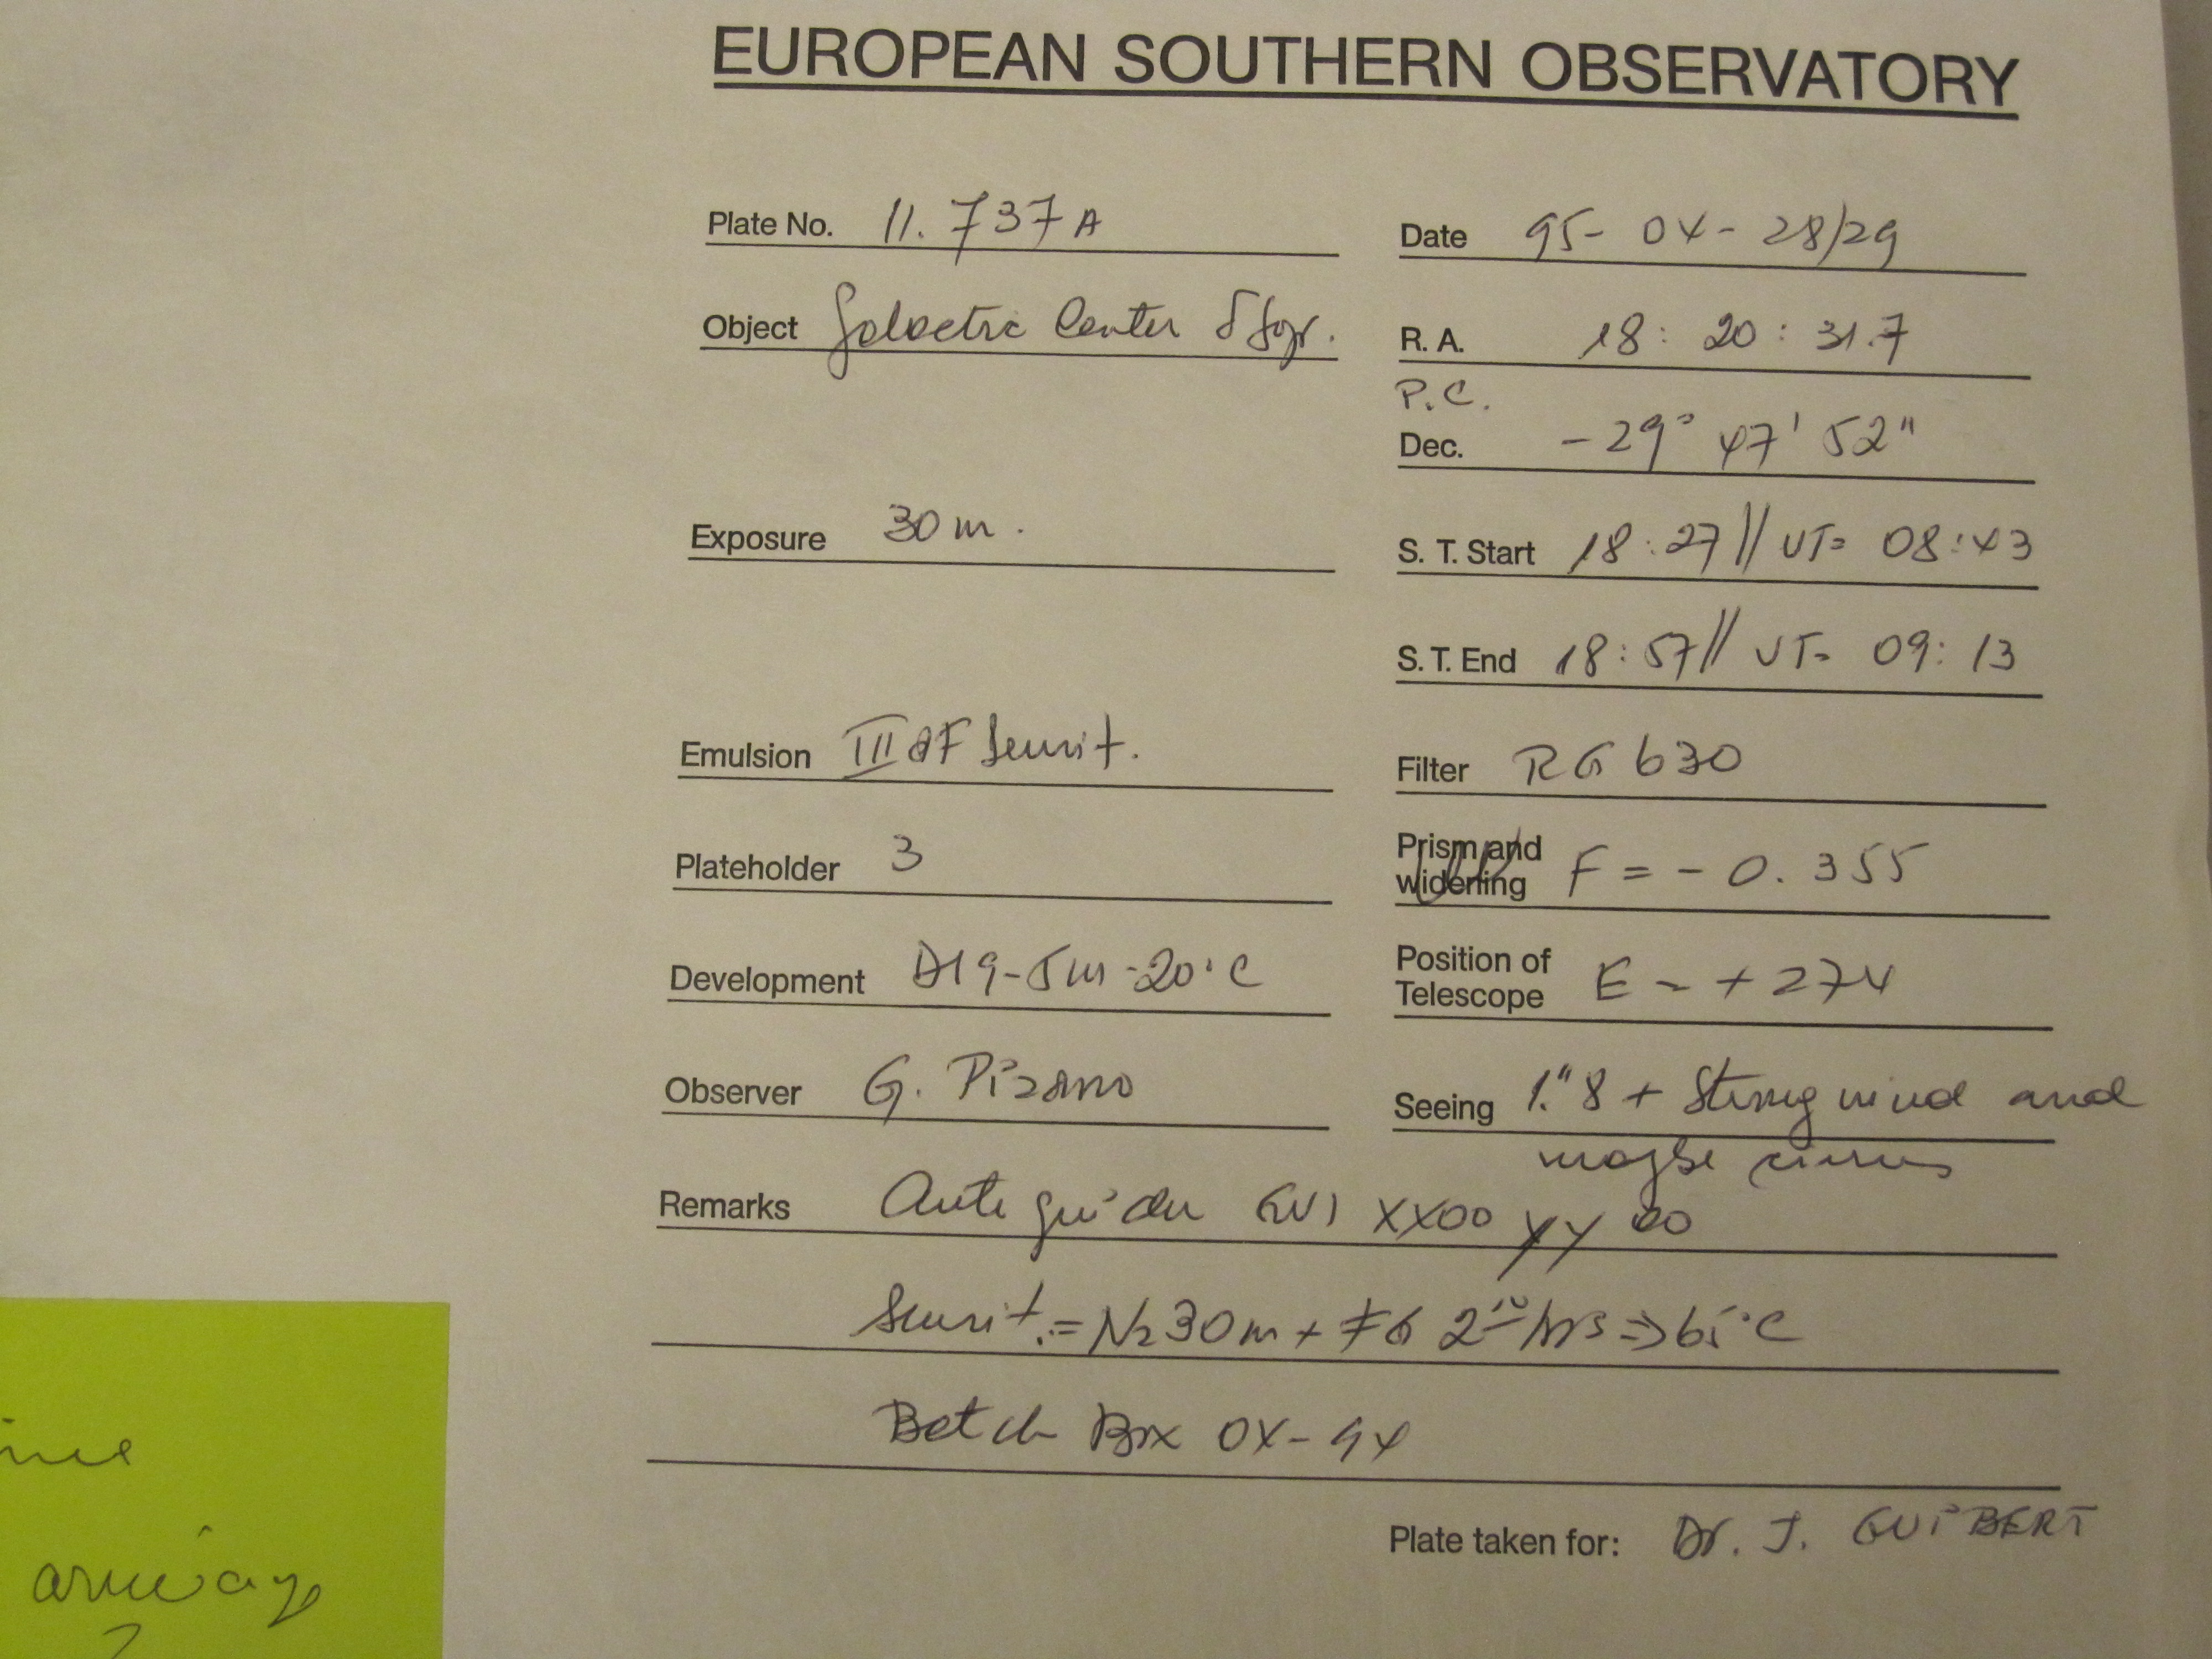 EUROPEAN SOUTHERN OBSERVATORY
Plate No. 11.737A
Date 95-04-28/29
Object Galactic Center δ Sgr.
R. A. 18: 20: 31.7
P.C.
Dec. -29° 47' 52"
Exposure 30m.
S. T. Start 18:27// UT= 08:43
S. T. End 18:57// UT= 09:13
Emulsion III aF Sensit.
Filter RG 630
Plateholder 3
Prism and widening F = - 0.355
Development D19-5m-20°C
Position of Telescope E = + 274
Observer G. Pizarro
Seeing 1."8 + Strong wind and
maybe cirrus
Remarks Auto guider GV1 XX00 YY 00
Sensit.:= N2 30m + FG 2 hrs => 65°C
Batch Box 04-94
Plate taken for: Dr. J. GUIBERT